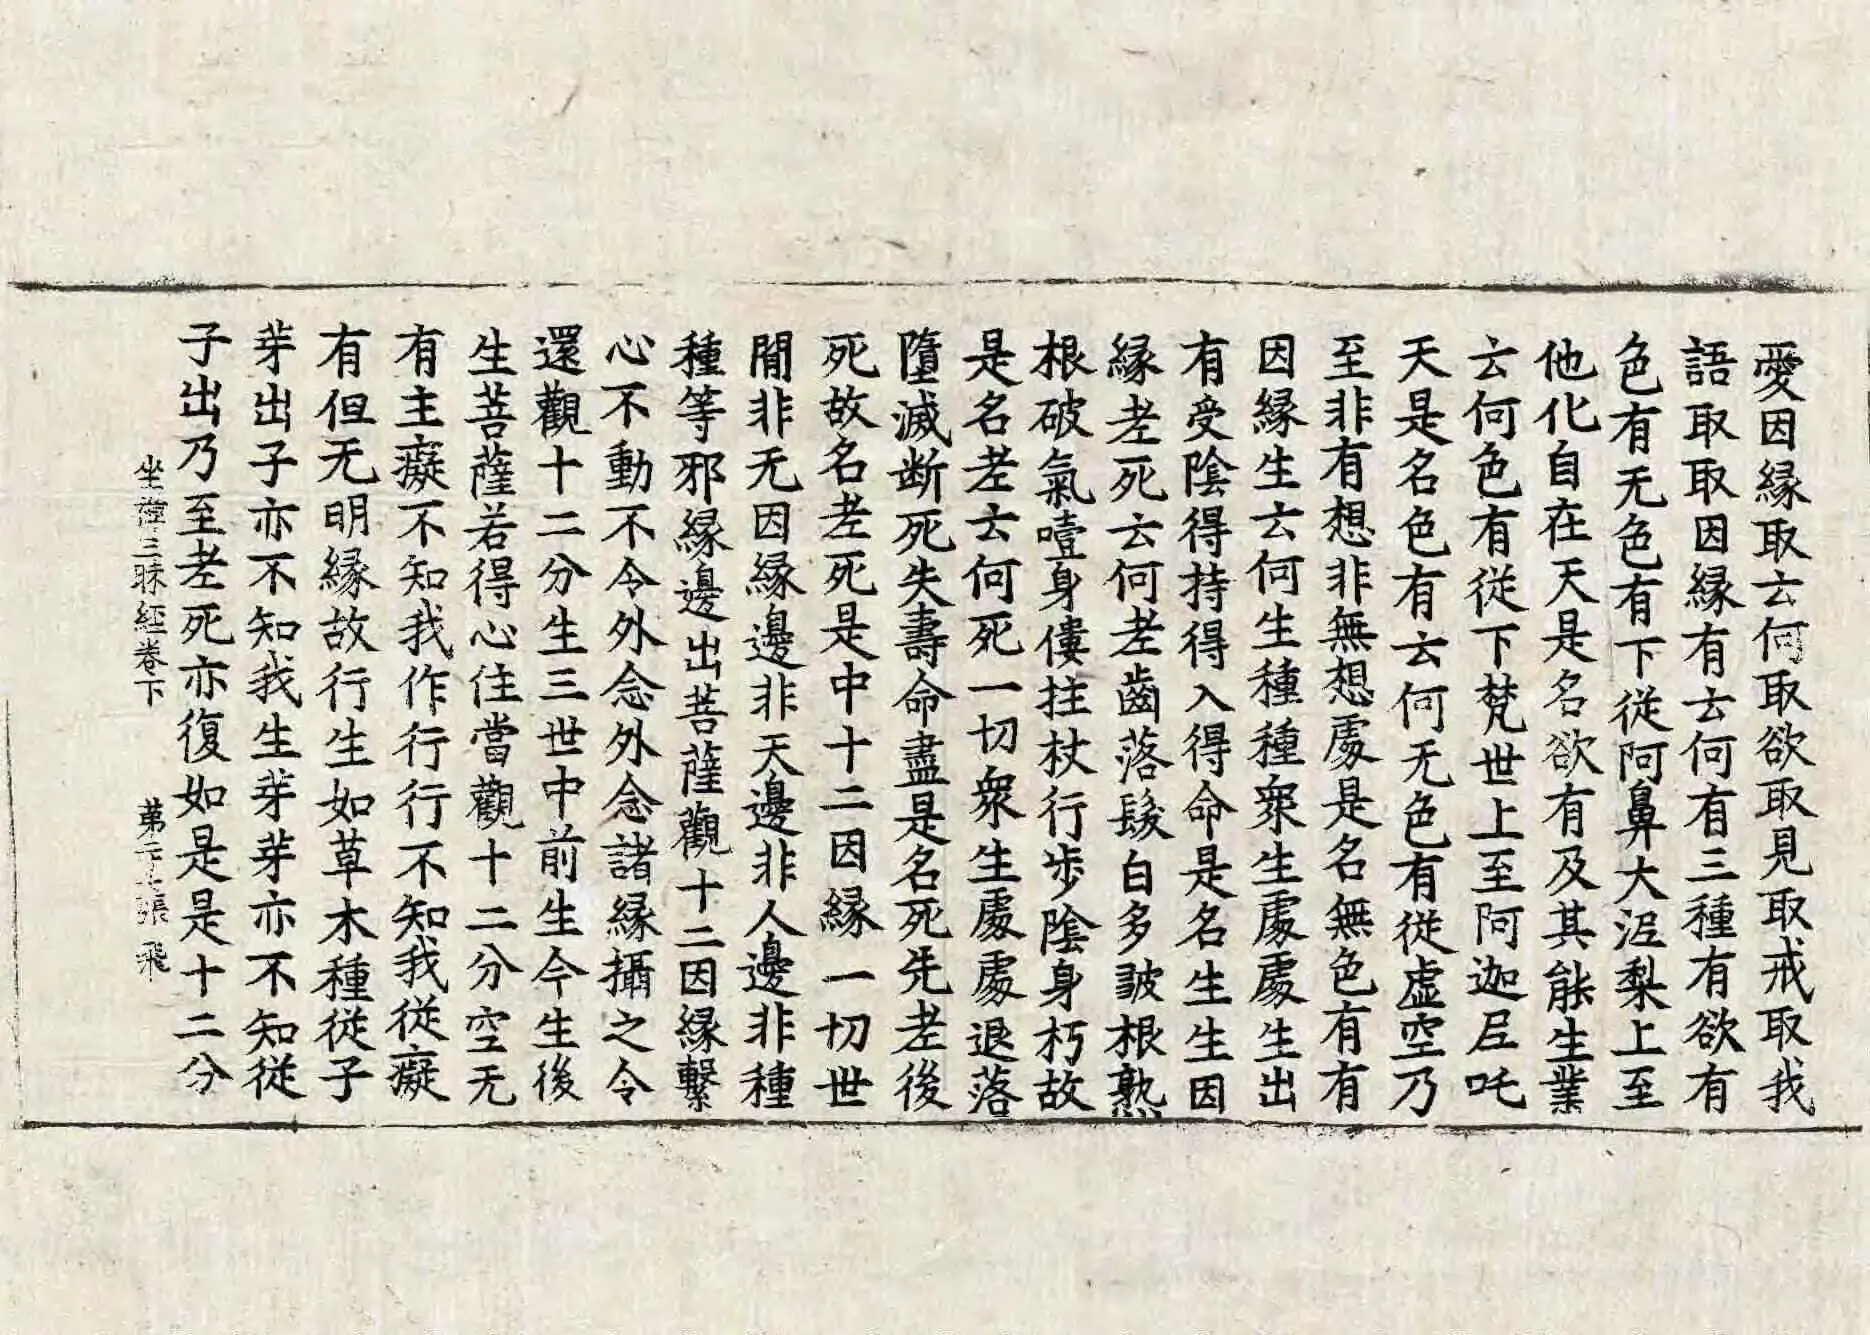 愛因縁取云何取欲取見取戒取我
語取取因縁有云何有三種有欲有
色有无色有下従阿鼻大泥梨上至
他化自在天是名欲有及其能生業
云何色有従下梵世上至阿迦尼吒
天是名色有云何无色有従虚空乃
至非有想非無想處是名無色有有
因縁生云何生種種衆生處處生出
有受陰得持得入得命是名生生因
縁老死云何老齒落髮白多皺根熟
根破氣噎身僂拄杖行歩陰身朽故
是名老云何死一切衆生處處退落
墮滅断死失壽命盡是名死先老後
死故名老死是中十二因縁一切世
間非无因縁邊非天邊非人邊非種
種等邪縁邊出菩薩觀十二因縁繫
心不動不令外念外念諸縁攝之令
還觀十二分生三世中前生今生後
生菩薩若得心住當觀十二分空无
有主癡不知我作行行不知我従癡
有但无明縁故行生如草木種従子
芽出子亦不知我生芽芽亦不知従
子出乃至老死亦復如是是十二分
坐禪三昧経卷下 第 張 飛